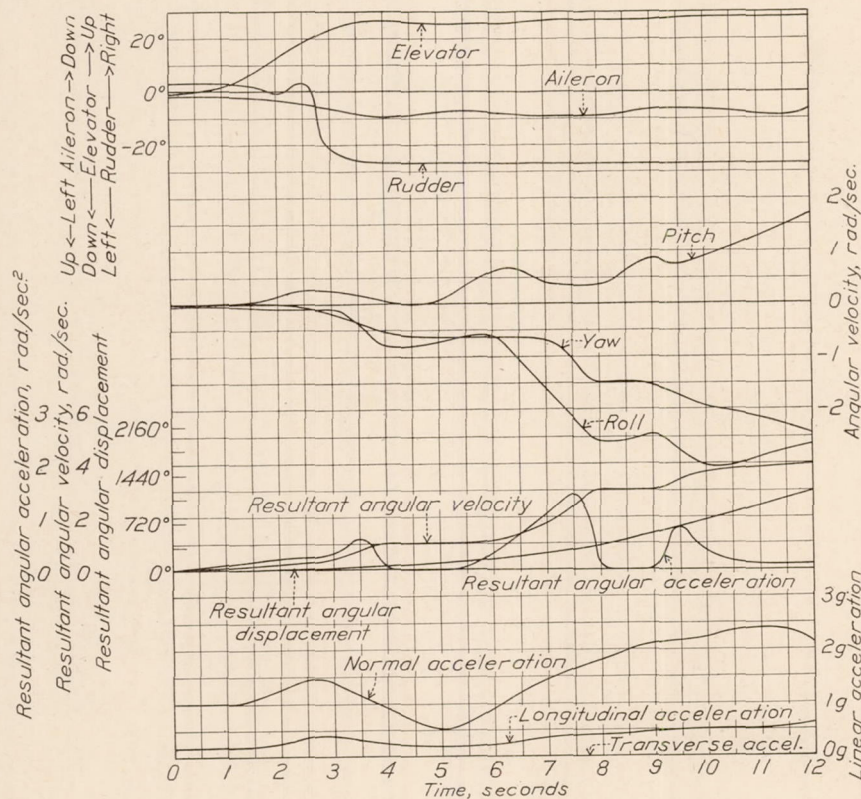 20°
0°
-20°
Up<-Left Aileron->Down
Down<-Elevator->Up
Left<-Rudder->Right
Elevator
Aileron
Rudder
Pitch
Yaw
Roll
2
1
0
-1
-2
Angular velocity, rad/sec.
Resultant angular acceleration, rad/sec.²
Resultant angular velocity, rad/sec.
Resultant angular displacement
3 6 2160°
2 4 1440°
1 2 720°
0 0 0°
Resultant angular velocity
Resultant angular acceleration
Resultant angular
displacement
Normal acceleration
Longitudinal acceleration
Transverse accel.
3g
2g
1g
0g
Linear acceleration
0 1 2 3 4 5 6 7 8 9 10 11 12
Time, seconds